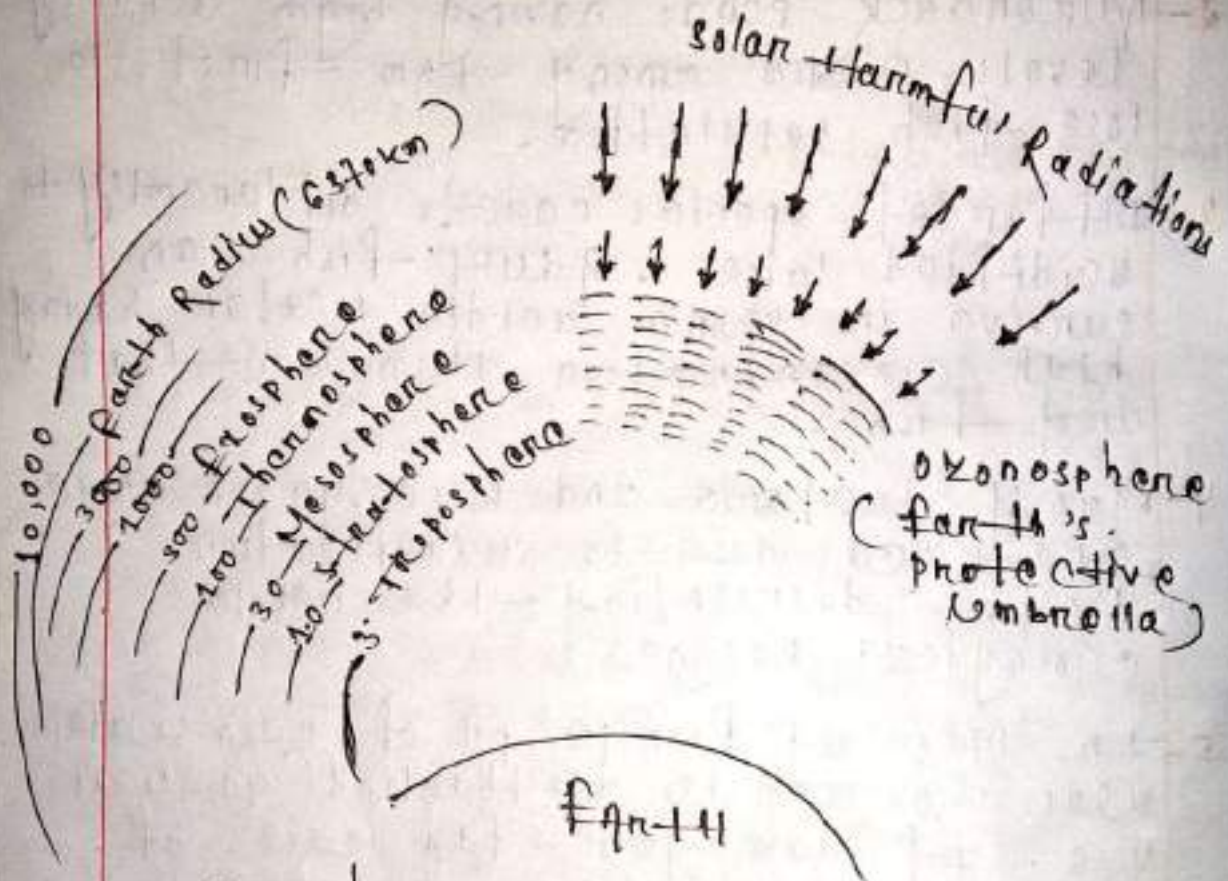 Solar Harmful Radiations
10,000
Earth Radius (6370km)
3000
1000
500 Exosphere
100 Thermosphere
30 Mesosphere
10 Stratosphere
3 Troposphere
Ozonosphere
(Earth's
protective
Umbrella)
EARTH